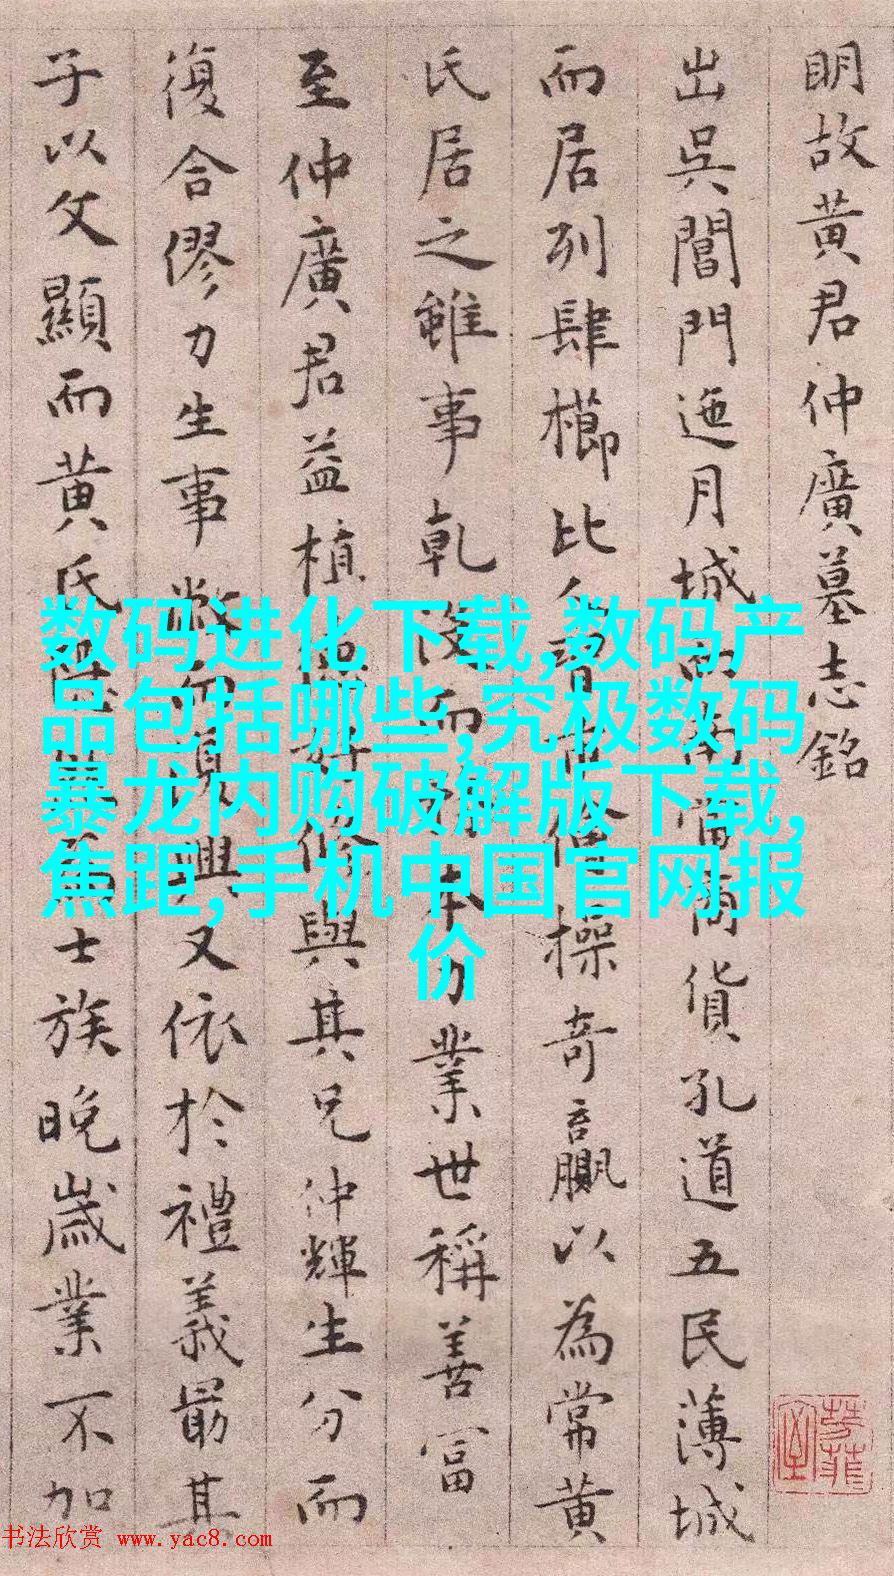 明故黄君仲廣墓志銘
出吳閶門迤月城西南當商貨孔道五民薄城
而居列肆櫛比 操奇贏以為常黄
氏居之雖事乾沒而 本力業世稱善富
至仲廣君益植 修與其兄仲輝生分而
復合僇力生事 興又依於禮義最其
子以文顯而黄氏 士族晚歲業不加
数码进化下载,数码产
品包括哪些,究极数码
暴龙内购破解版下载,
焦距,手机中国官网报
价
书法欣赏 www.yac8.com